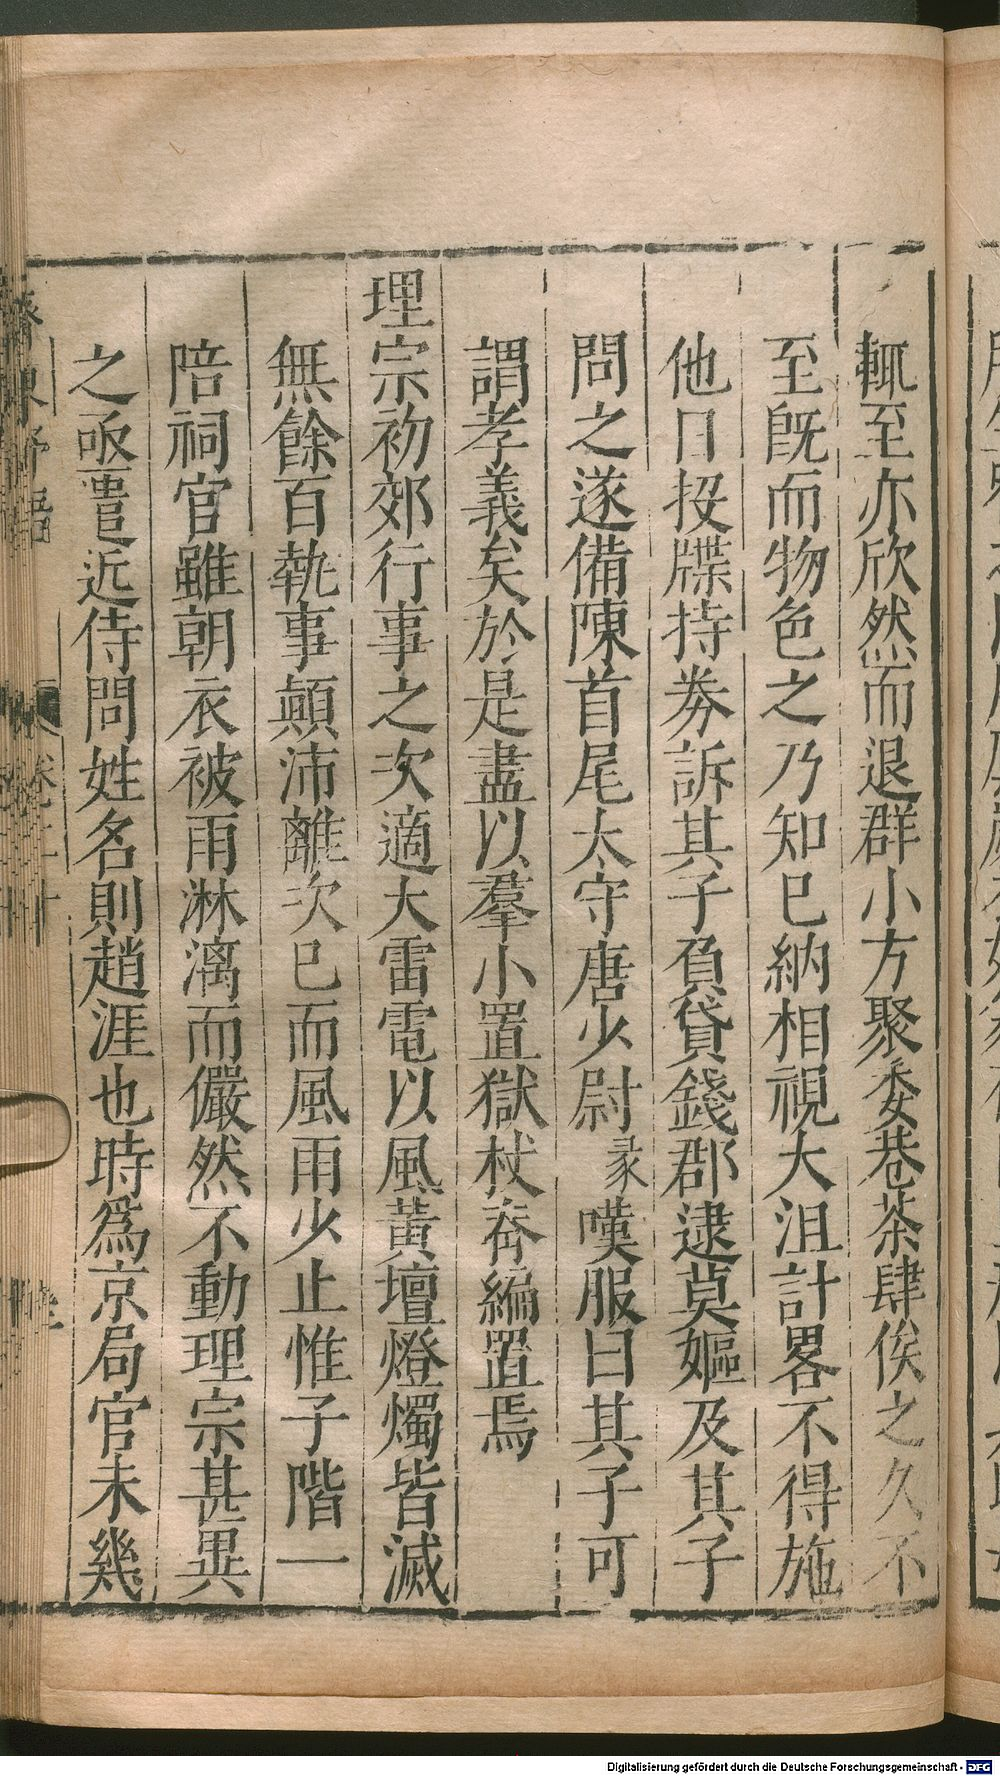 輒至亦欣然而退群小方聚委巷茶肆俟之久不
至旣而物色之乃知巳納相視大沮計畧不得施
他日投牒持券訴其子負貸錢郡逮莫嫗及其子
問之遂備陳首尾太守唐少尉彖嘆服曰其子可
謂孝義矣於是盡以羣小置獄杖脊編置焉
理宗初郊行事之次適大雷電以風黃壇燈燭皆滅
無餘百執事顛沛離次巳而風雨少止惟子階一
陪祠官雖朝衣被雨淋漓而儼然不動理宗甚異
之亟遣近侍問姓名則趙涯也時爲京局官未幾
Digitalisierung gefördert durch die Deutsche Forschungsgemeinschaft - DFG